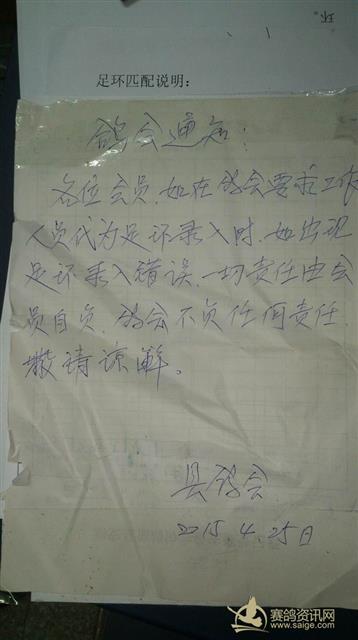 环
足环匹配说明：
鸽会通知：
各位会员，如在鸽会要求工作
人员代为足环录入时，如出现
足环录入错误，一切责任由会
员自负，鸽会不负任何责任，
敬请谅解。
县鸽会
2015 4.25日
赛鸽资讯网
www.saige.com